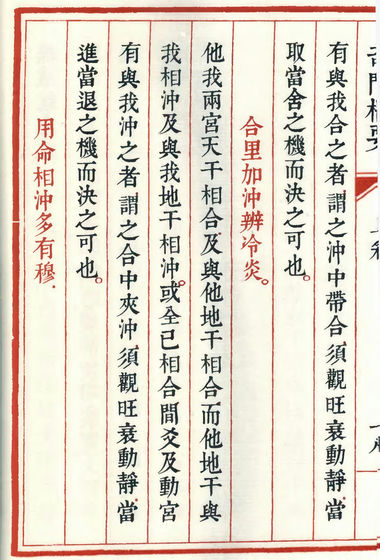 有與我合之者謂之沖中帶合.須觀旺衰動靜.當
取當舍之機而決之可也。
合里加沖辨冷炎。
他我兩宮天干相合及與他地干相合而他地干與
我相沖及與我地干相沖。或全已相合間爻及動宮
有與我沖之者謂之合中夾沖.須觀旺衰動靜.當
進當退之機而決之可也。
用命相沖多有穆.